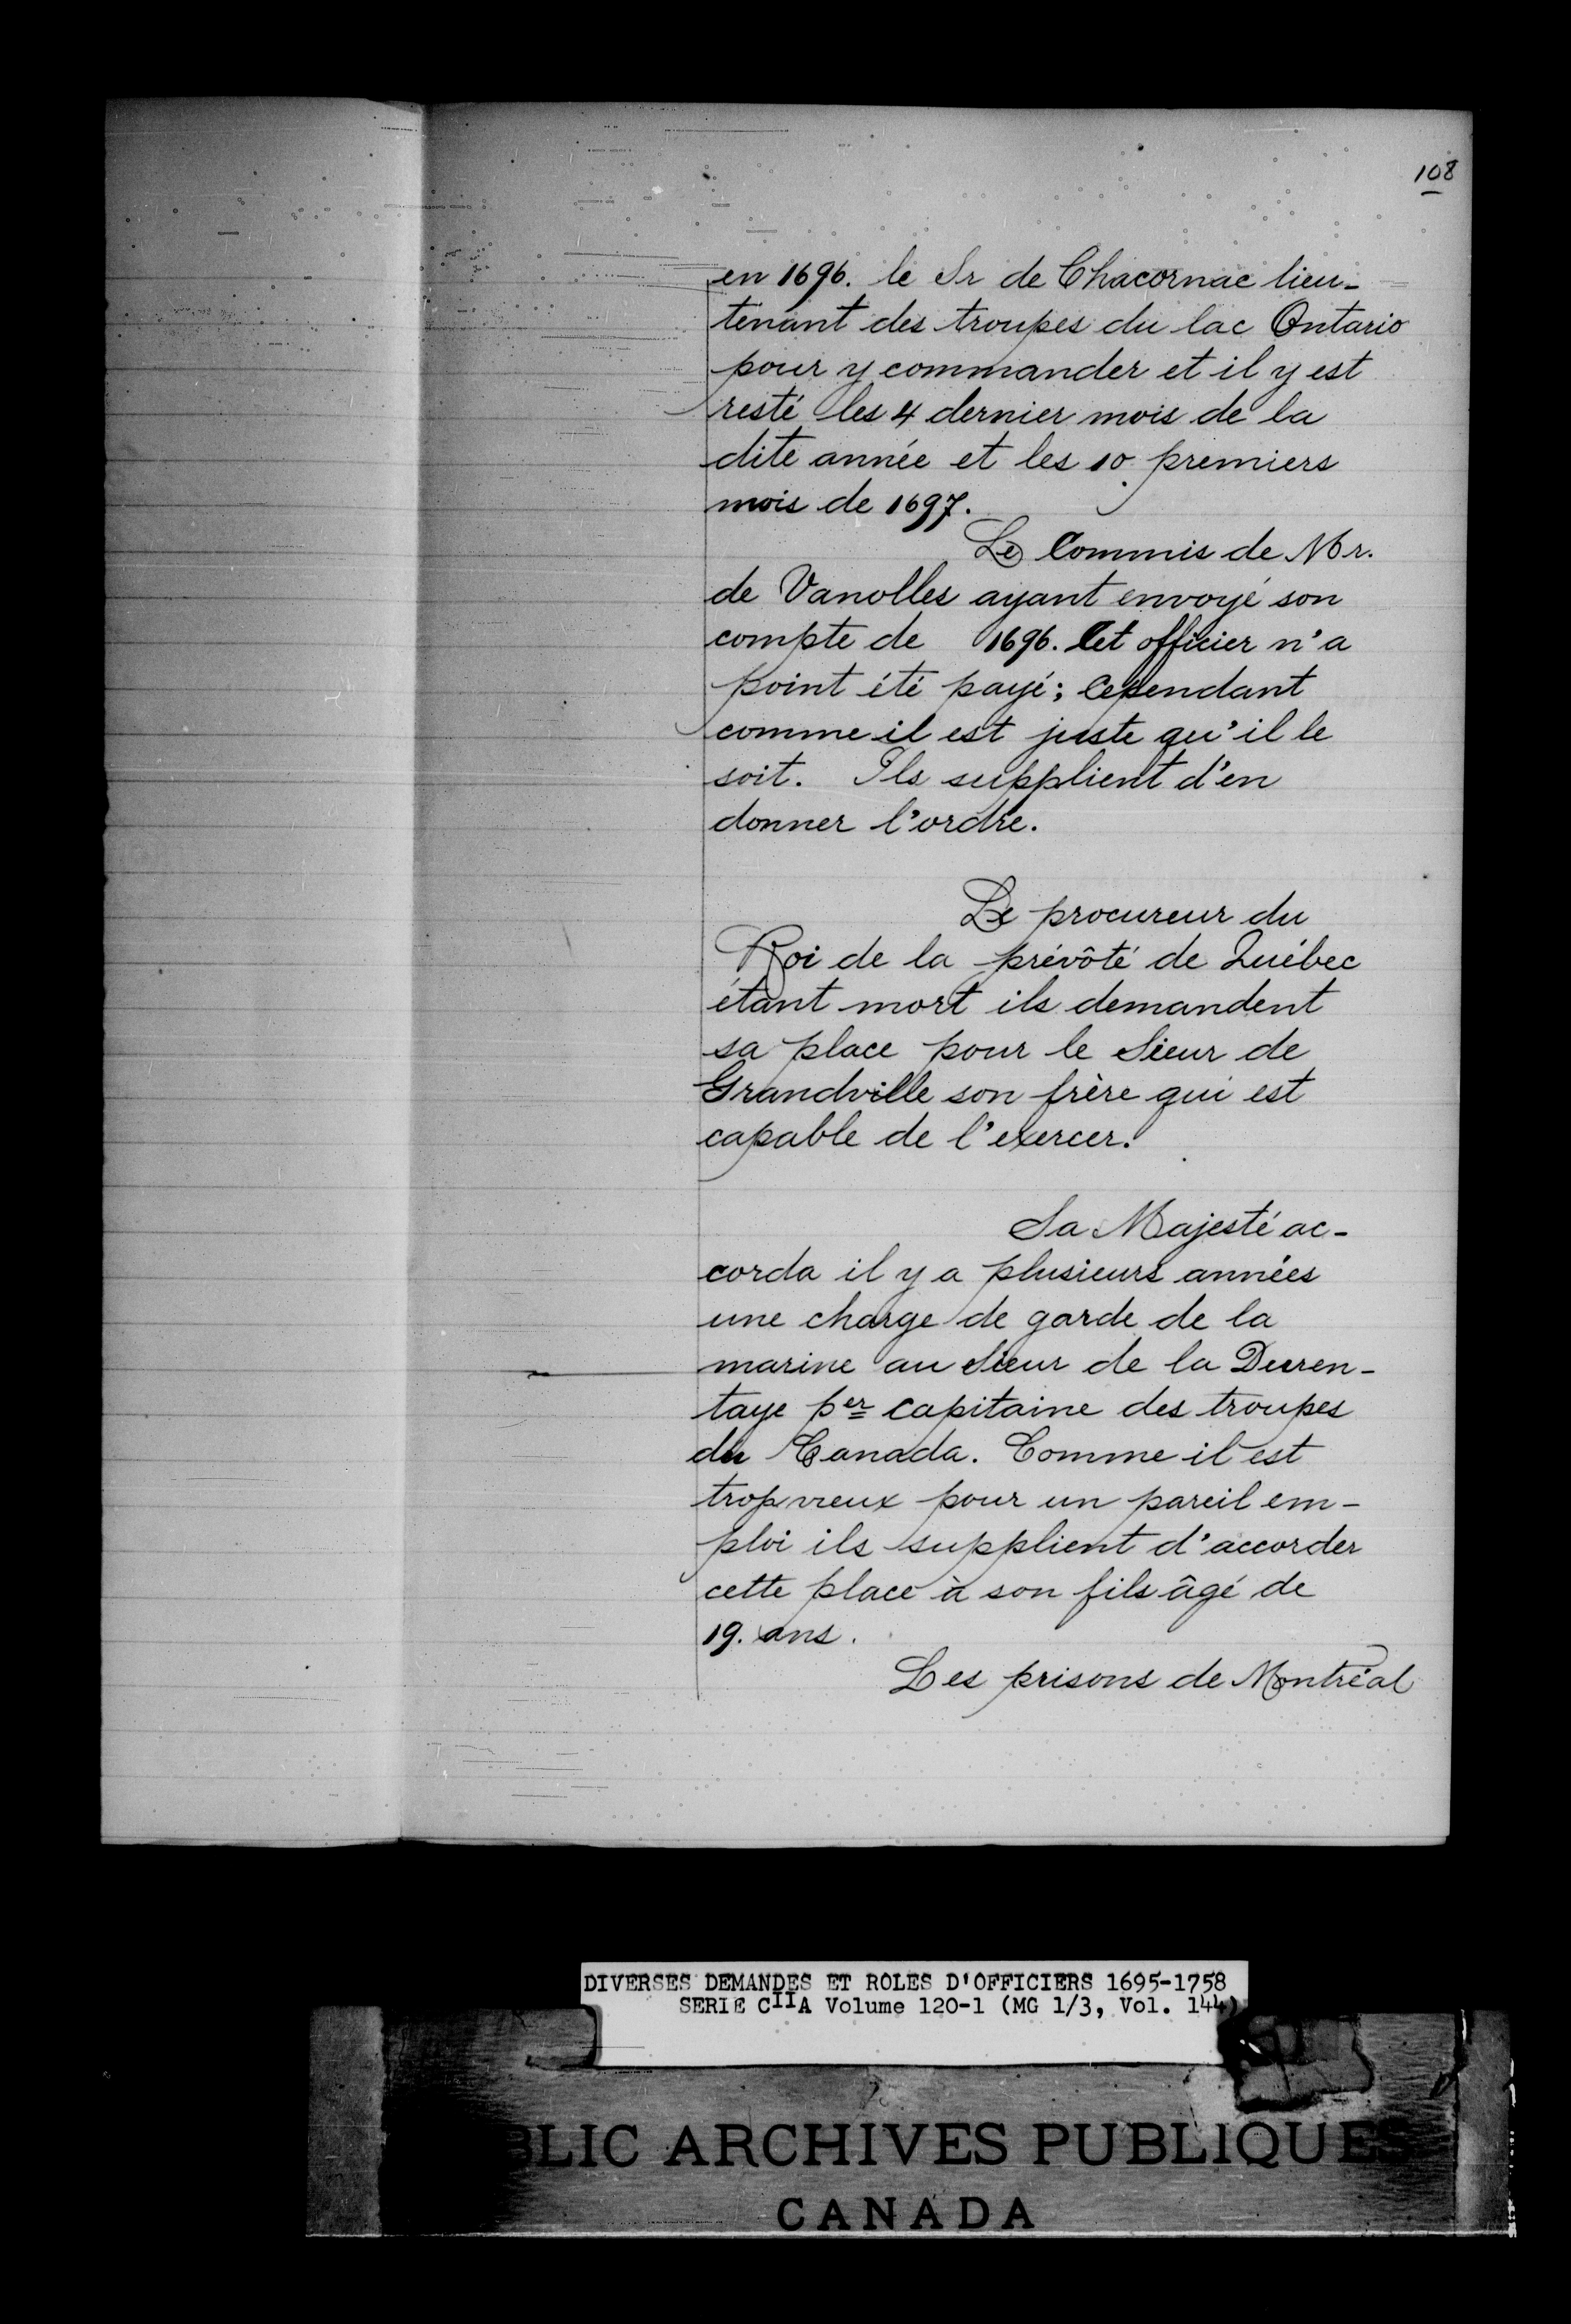 108
en 1696. le Sr de Chacornac lieu-
tenant des troupes du lac Ontario
pour y commander et il y est
resté les 4 dernier mois de la
dite année et les 10 premiers
mois de 1697.
Le Commis de Mr.
de Vanolles ayant envoyé son
compte de 1696. Cet officier n'a
point été payé; Cependant
comme il est juste qu'il le
soit. Ils supplient d'en
donner l'ordre.
Le procureur du
Roi de la prévôté de Québec
étant mort ils demandent
sa place pour le Sieur de
Grandville son frère qui est
capable de l'exercer.
Sa Majesté ac-
corda il y a plusieurs années
une charge de garde de la
marine au Sieur de la Duren-
taye per capitaine des troupes
du Canada. Comme il est
trop vieux pour un pareil em-
ploi ils supplient d'accorder
cette place à son fils âgé de
19. ans.
Les prisons de Montréal
DIVERSES DEMANDES ET ROLES D'OFFICIERS 1695-1758
SERIE CIIA Volume 120-1 (MG 1/3, Vol. 144)
BLIC ARCHIVES PUBLIQUES
CANADA